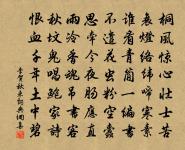 桐風驚心壯士苦
衰燈絡緯啼寒素
誰看青簡一編書
不遣花蟲粉空蠹
思牽今夜腸應直
雨冷香魂吊書客
秋墳鬼唱鮑家詩
恨血千年土中碧
李賀秋來詞典網集